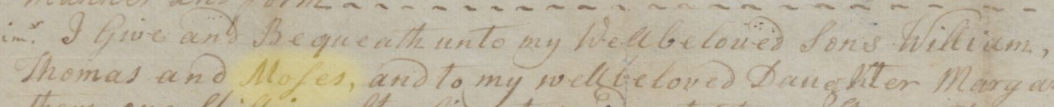 manner and form
im^s. I Give and Bequeath unto my Wellbeloved Sons William,
Thomas and Moses, and to my wellbeloved Daughter Margar